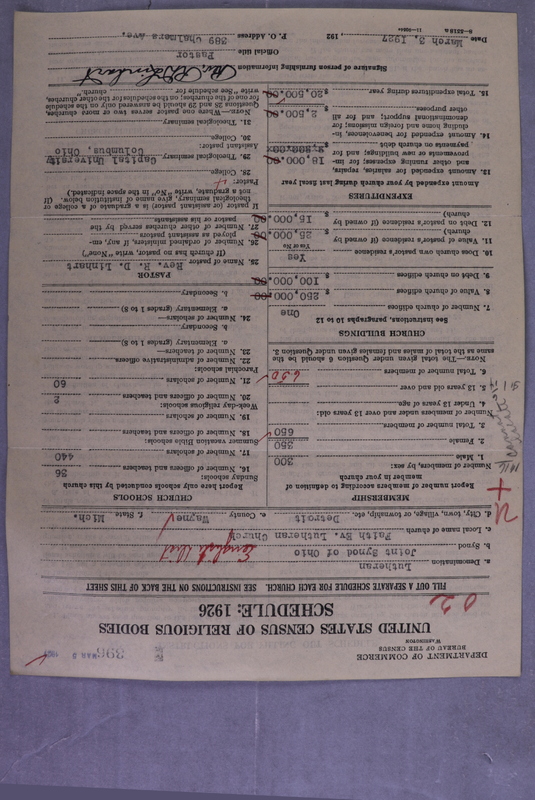 DEPARTMENT OF COMMERCE
BUREAU OF THE CENSUS
WASHINGTON
396
MAR 5 1927
UNITED STATES CENSUS OF RELIGIOUS BODIES
SCHEDULE: 1926
FILL OUT A SEPARATE SCHEDULE FOR EACH CHURCH. SEE INSTRUCTIONS ON THE BACK OF THIS SHEET
a. Denomination Lutheran
b. Synod Joint Synod of Ohio
English Dist
c. Local name of church Faith Ev. Lutheran Church
d. City, town, village, or township, etc. Detroit e. County Wayne f. State Mich.
MEMBERSHIP
Report number of members according to definition of member in your church
Number of members, by sex:
1. Male 300
2. Female 350
3. Total number of members 650
Number of members under and over 13 years old:
4. Under 13 years of age
5. 13 years old and over
6. Total number of members 650
NOTE.—The total given under Question 6 should be the same as the total of males and females given under Question 3.
CHURCH BUILDINGS
See instructions, paragraphs 10 to 12
7. Number of church edifices One
8. Value of church edifices $ 250,000.00
9. Debt on church edifices $ 100,000.00
10. Does church own pastor's residence Yes
Yes or No
11. Value of pastor's residence (if owned by church) $ 25,000.00
12. Debt on pastor's residence (if owned by church) $ 15,000.00
EXPENDITURES
Amount expended by your church during last fiscal year
13. Amount expended for salaries, repairs, and other running expenses; for improvements or new buildings; and for payments on church debt $ 18,000.00
14. Amount expended for benevolences, including home and foreign missions; for denominational support; and for all other purposes $ 2,500.00
15. Total expenditures during year $ 20,500.00
CHURCH SCHOOLS
Report here only schools conducted by this church
Sunday schools:
16. Number of officers and teachers 36
17. Number of scholars 440
Summer vacation Bible schools:
18. Number of officers and teachers
19. Number of scholars
Week-day religious schools:
20. Number of officers and teachers 2
21. Number of scholars 60
Parochial schools:
22. Number of administrative officers
23. Number of teachers—
a. Elementary (grades 1 to 8)
b. Secondary
24. Number of scholars—
a. Elementary (grades 1 to 8)
b. Secondary
PASTOR
25. Name of pastor Rev. R. D. Linhart
(If church has no pastor, write "None")
26. Number of ordained ministers, if any, employed as assistant pastors
27. Number of other churches served by the pastor or his assistants
If pastor (or assistant pastor) is a graduate of a college or theological seminary, give name of institution below. (If not a graduate, write "No" in the space indicated.)
Pastor:
28. College
29. Theological seminary Capital University
Columbus, Ohio
Assistant pastor:
30. College
31. Theological seminary
NOTE.—Where one pastor serves two or more churches, Questions 28 and 29 should be answered only on the schedule for one of the churches; on the schedules for the other churches, write "See schedule for church."
Signature of person furnishing information
Official title Pastor
Date March 3, 1927, 192 P. O. Address 389 Chalmers Ave.